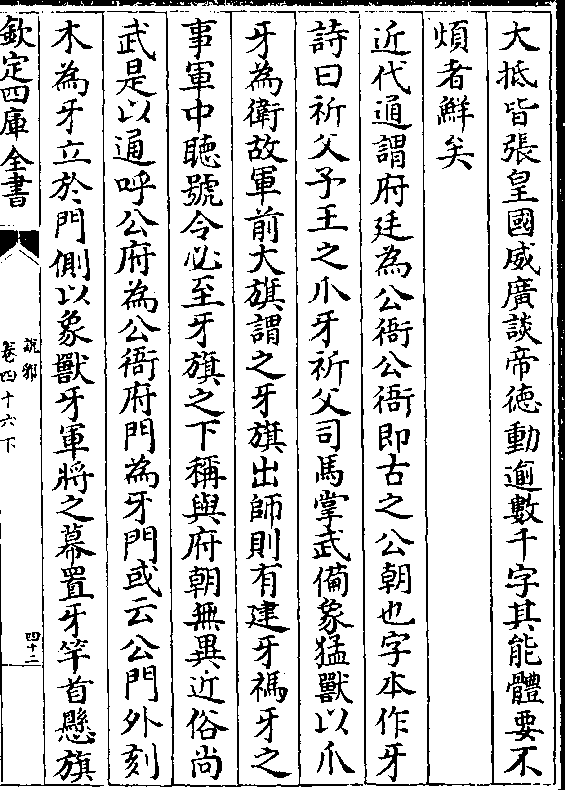 大抵皆張皇國威廣談帝徳動逾數千字其能體要不
煩者鮮矣
近代通謂府廷為公衙公衙即古之公朝也字本作牙
詩曰祈父予王之爪牙祈父司馬掌武備象猛獸以爪
牙為衛故軍前大旗謂之牙旗出師則有建牙禡牙之
事軍中聽號令必至牙旗之下稱與府朝無異近俗尚
武是以通呼公府為公衙府門為牙門或云公門外刻
木為牙立於門側以象獸牙軍將之幕置牙竿首懸旗
欽定四庫全書
說郛
卷四十六下
四十三